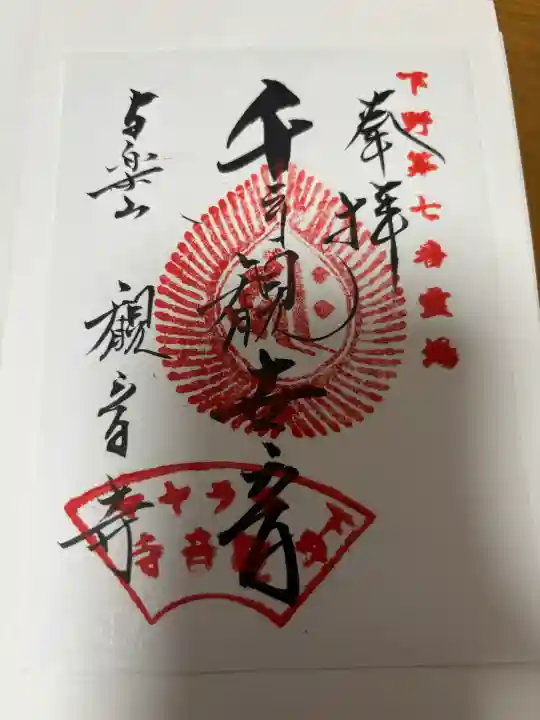 下野第七番霊場
奉拝
千手観世音
与楽山 観音寺